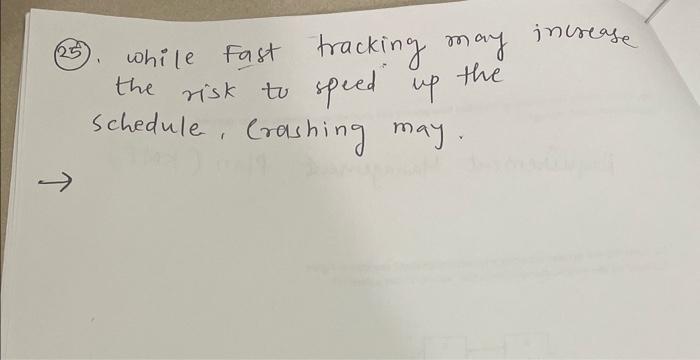 25. while Fast tracking may increase
the risk to speed up the
schedule, Crashing may.
→